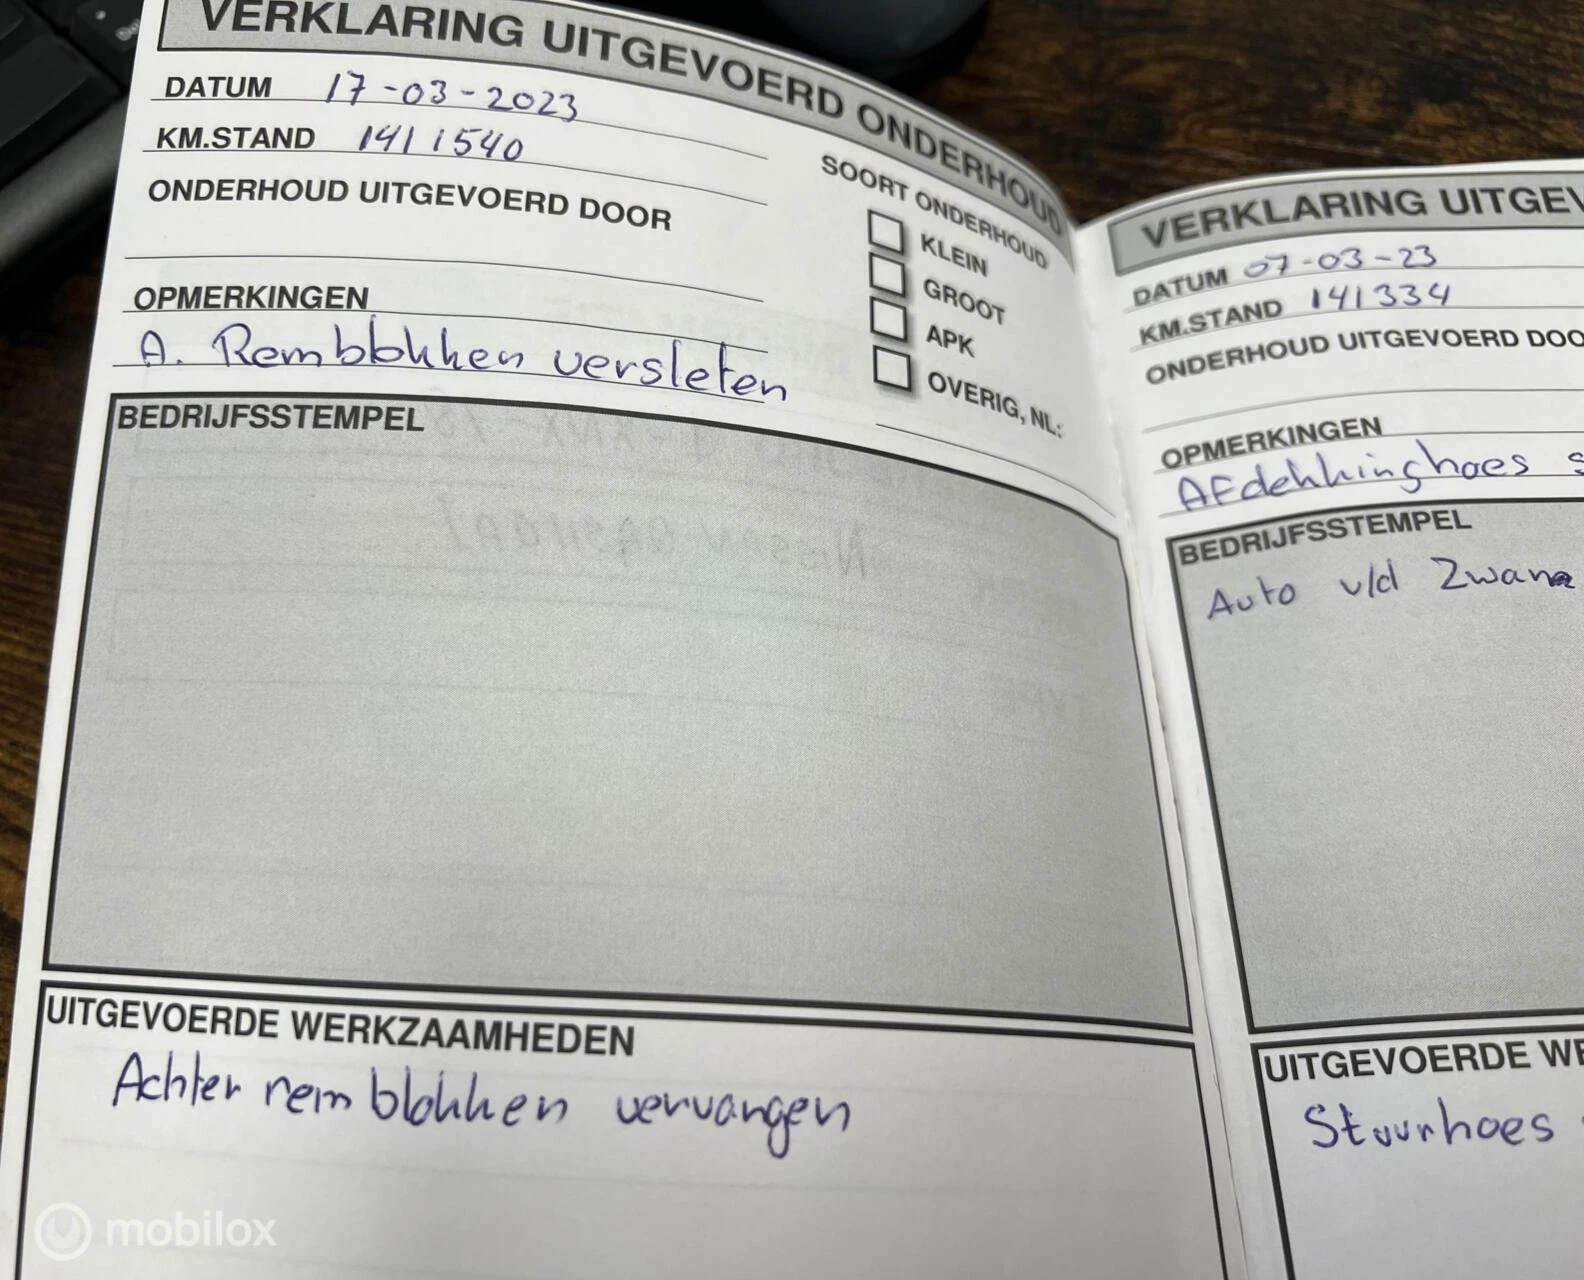 VERKLARING UITGEVOERD ONDERHOUD
DATUM 17-03-2023
KM.STAND 1411540
ONDERHOUD UITGEVOERD DOOR
OPMERKINGEN
A. Remblokken versleten
SOORT ONDERHOUD
KLEIN
GROOT
APK
OVERIG, NL:
BEDRIJFSSTEMPEL
UITGEVOERDE WERKZAAMHEDEN
Achter remblokken vervangen
VERKLARING UITGEV
DATUM 07-03-23
KM.STAND 141334
ONDERHOUD UITGEVOERD DOO
OPMERKINGEN
Afdekkinghoes s
BEDRIJFSSTEMPEL
Auto v/d Zwan
UITGEVOERDE WE
Stuurhoes
mobilox